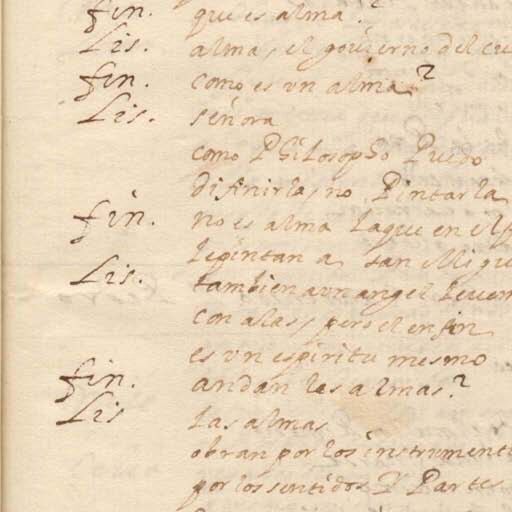 fin. que es alma?
Lis. alma, el govierno del cu
fin. como es un alma?
Lis. señora
como Philosopho Puedo
difinirla, no Pintarla
fin. no es alma la que en el p
le pintan a san Migue
Lis. tambien a un angel le vem
con alas, pero el en fin
es un espiritu mesmo
fin. andan las almas?
Lis Las almas
obran por los instrument
por los sentidos Y Partes